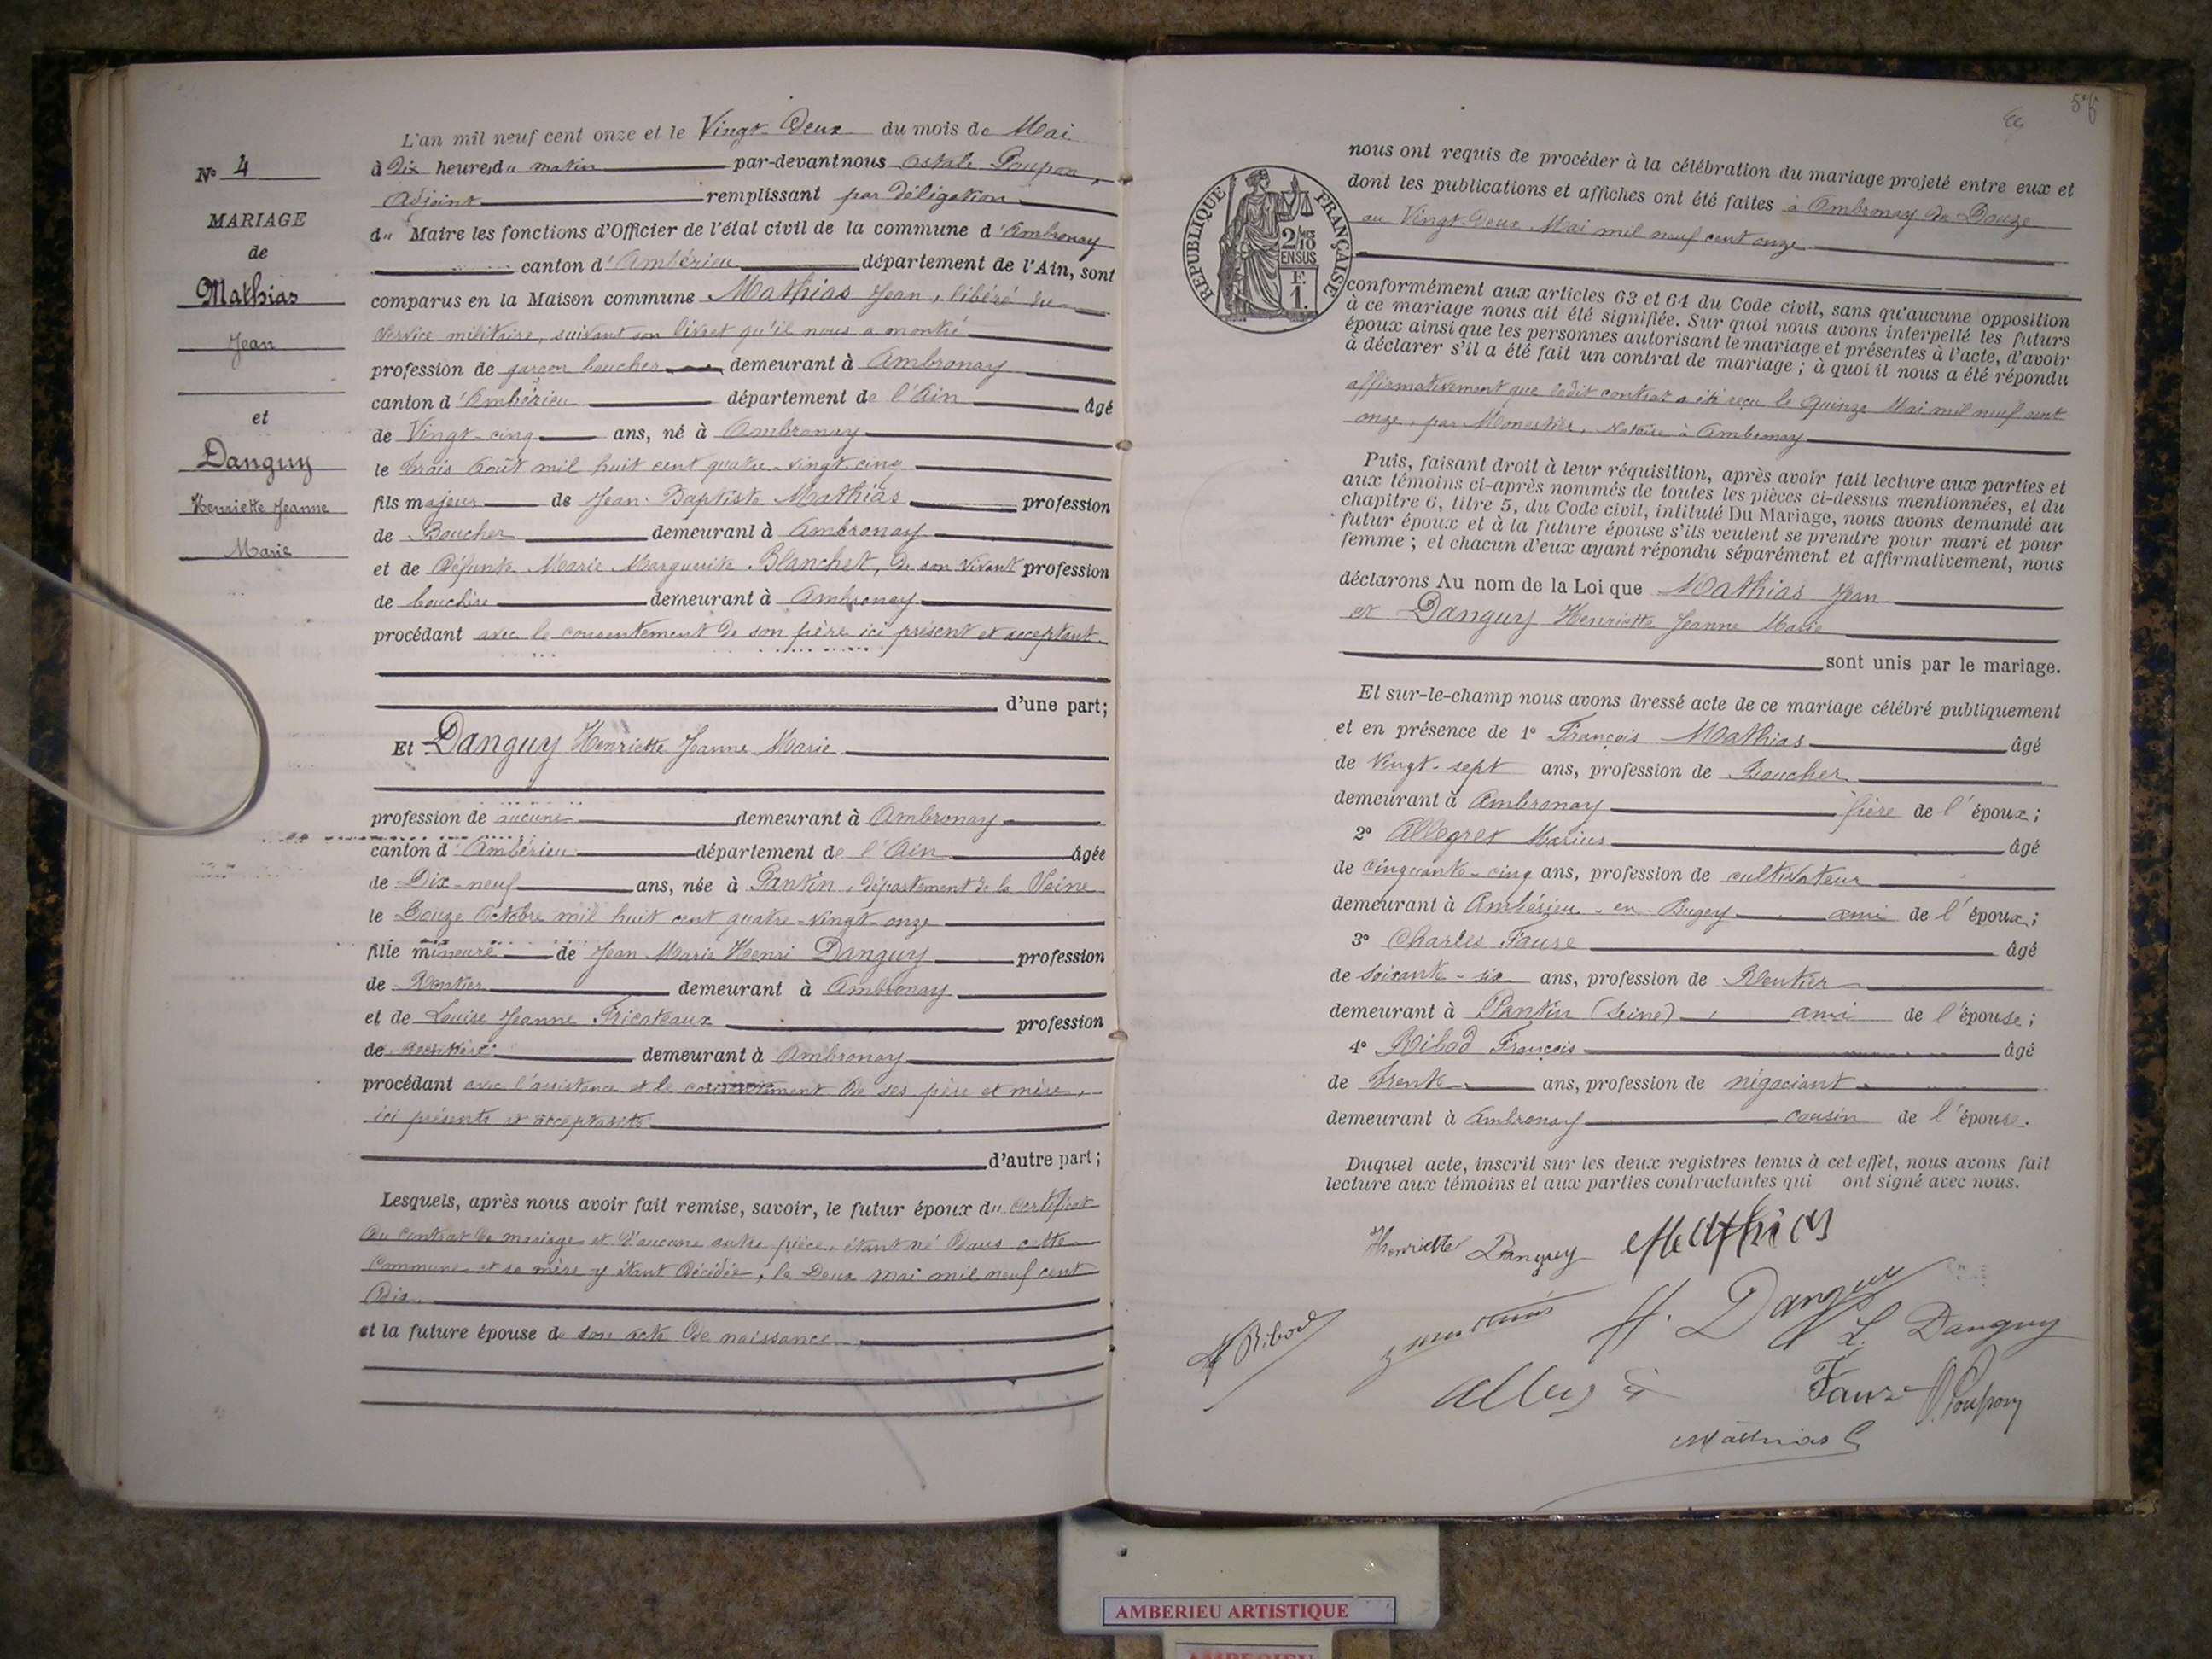 N° 4
MARIAGE
de
Mathias
Jean
et
Danguy
Henriette Jeanne
Marie
L'an mil neuf cent onze et le Vingt-Deux du mois de Mai
à Dix heures du matin par-devant nous Poupon,
Adjoint remplissant par Délégation
du Maire les fonctions d'Officier de l'état civil de la commune d'Ambronay
canton d'Ambérieu département de l'Ain, sont
comparus en la Maison commune Mathias Jean, libéré du
Service militaire, suivant son livret qu'il nous a montré
profession de garçon boucher demeurant à Ambronay
canton d'Ambérieu département de l'Ain âgé
de Vingt-cinq ans, né à Ambronay
le trois Août mil huit cent quatre-vingt-cinq
fils majeur de Jean-Baptiste Mathias profession
de Boucher demeurant à Ambronay
et de Défunte Marie Marguerite Blanchet, De son vivant profession
de bouchère demeurant à Ambronay
procédant avec le consentement de son père ici présent et acceptant
d'une part;
Et Danguy Henriette Jeanne Marie
profession de aucune demeurant à Ambronay
canton d'Ambérieu département de l'Ain âgée
de Dix-neuf ans, née à Pantin, département de la Seine
le Douze Octobre mil huit cent quatre-vingt-onze
fille mineure de Jean Marie Henri Danguy profession
de Rentier demeurant à Ambronay
et de Louise Jeanne Tricoteaux profession
de Rentière demeurant à Ambronay
procédant avec l'assistance et le consentement de ses père et mère,
ici présents et acceptants
d'autre part;
Lesquels, après nous avoir fait remise, savoir, le futur époux du certificat
du contrat de mariage et d'aucune autre pièce, étant né Dans cette
Commune et sa mère y étant Décédée, le Deux Mai mil neuf cent
Dix
et la future épouse de son acte de naissance
RÉPUBLIQUE FRANÇAISE
2/10
EN SUS
F.
1.
nous ont requis de procéder à la célébration du mariage projeté entre eux et
dont les publications et affiches ont été faites à Ambronay du Douze
au Vingt-Deux Mai mil neuf cent onze
conformément aux articles 63 et 64 du Code civil, sans qu'aucune opposition
à ce mariage nous ait été signifiée. Sur quoi nous avons interpellé les futurs
époux ainsi que les personnes autorisant le mariage et présentes à l'acte, d'avoir
à déclarer s'il a été fait un contrat de mariage; à quoi il nous a été répondu
affirmativement que ledit contrat a été reçu le Quinze Mai mil neuf cent
onze, par Monestier, Notaire à Ambronay
Puis, faisant droit à leur réquisition, après avoir fait lecture aux parties et
aux témoins ci-après nommés de toutes les pièces ci-dessus mentionnées, et du
chapitre 6, titre 5, du Code civil, intitulé Du Mariage, nous avons demandé au
futur époux et à la future épouse s'ils veulent se prendre pour mari et pour
femme; et chacun d'eux ayant répondu séparément et affirmativement, nous
déclarons Au nom de la Loi que Mathias Jean
et Danguy Henriette Jeanne Marie
sont unis par le mariage.
Et sur-le-champ nous avons dressé acte de ce mariage célébré publiquement
et en présence de 1° François Mathias âgé
de Vingt-sept ans, profession de Boucher
demeurant à Ambronay frère de l'époux;
2° Allegret Marius âgé
de cinquante-cinq ans, profession de cultivateur
demeurant à Ambérieu-en-Bugey ami de l'époux;
3° Charles Faure âgé
de soixante-six ans, profession de Rentier
demeurant à Pantin (Seine) ami de l'épouse;
4° Ribod François âgé
de Trente ans, profession de négociant
demeurant à Ambronay cousin de l'épouse.
Duquel acte, inscrit sur les deux registres tenus à cet effet, nous avons fait
lecture aux témoins et aux parties contractantes qui ont signé avec nous.
Henriette Danguy Mathias
H. Danguy
L. Danguy
Ribod
Faure Poupon
Mathias
AMBERIEU ARTISTIQUE
AMBERIEU